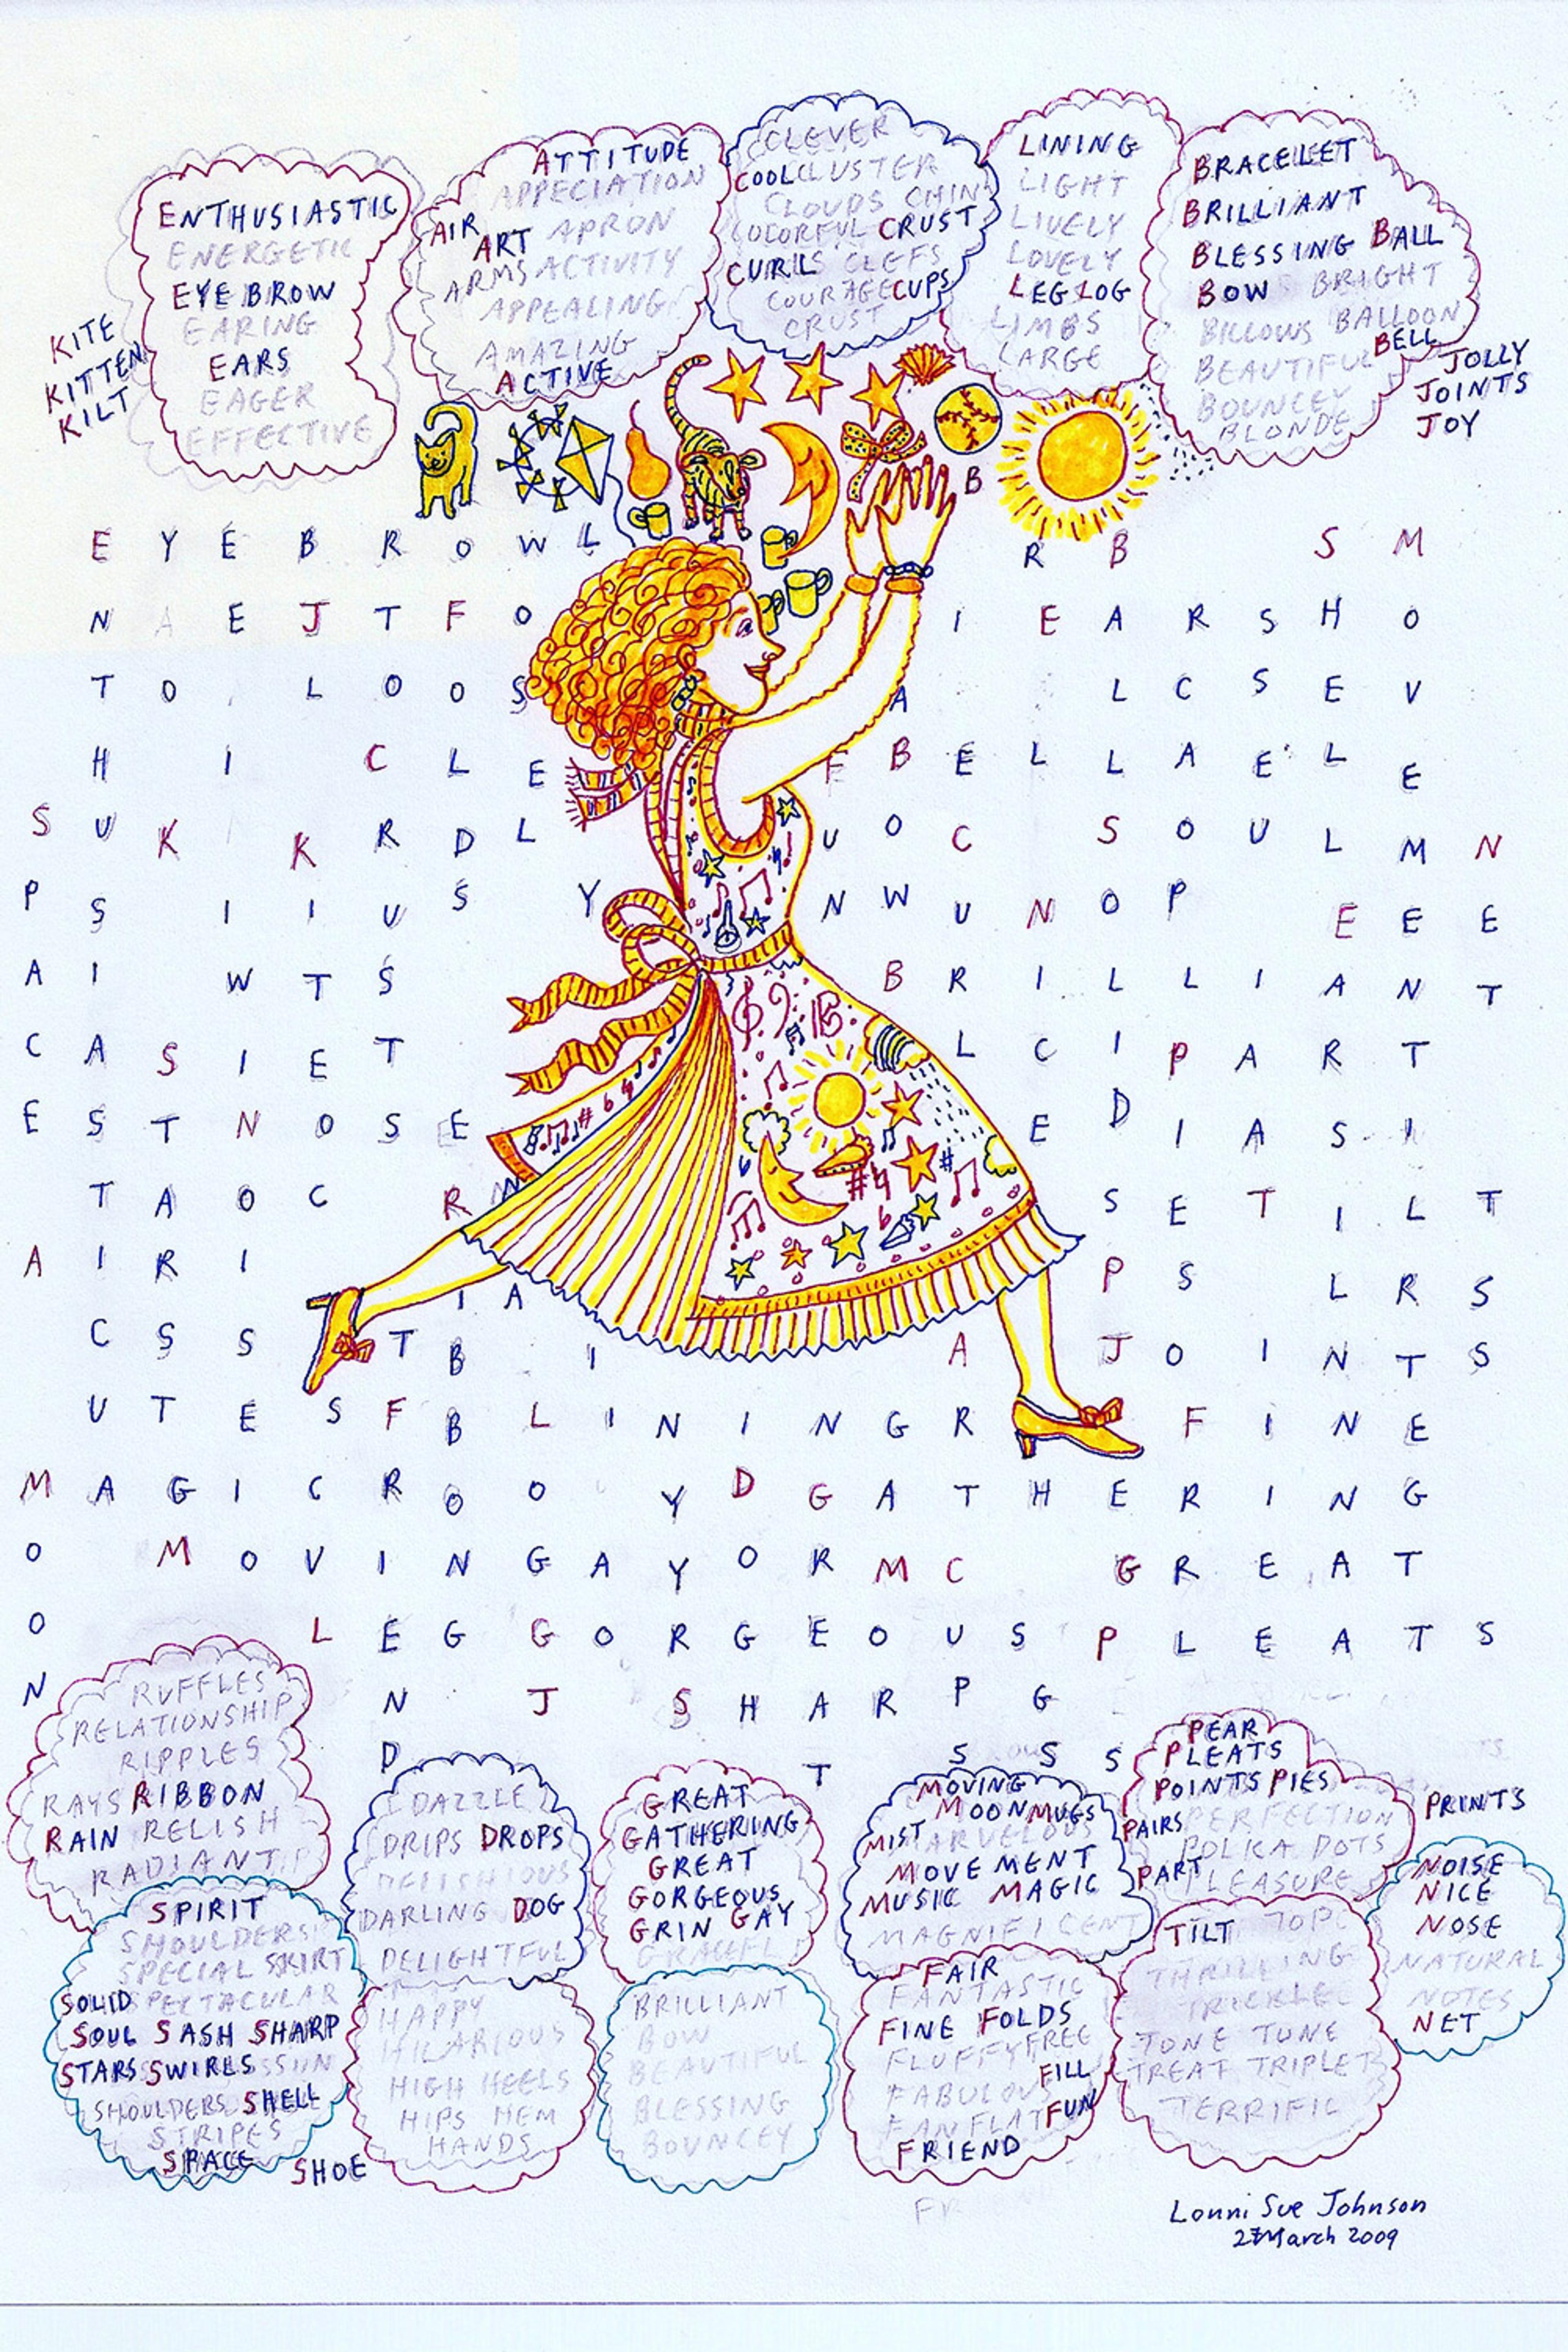 ENTHUSIASTIC
ENERGETIC
EYEBROW
EARING
EARS
EAGER
EFFECTIVE
KITE
KITTEN
KILT
ATTITUDE
APPECIATION
AIR
ART APRON
ARMS ACTIVITY
APPEALING
AMAZING
ACTIVE
CLEVER
COOL CLUSTER
CLOUDS CHIN
COLORFUL CRUST
CURLS CLEFS
COURAGE CUPS
CRUST
LINING
LIGHT
LIVELY
LOVELY
LEG LOG
LIMBS
LARGE
BRACELET
BRILLIANT
BLESSING BALL
BOW BRIGHT
BILLOWS BALLOON
BELL
BEAUTIFUL
BOUNCEY
BLONDE
JOLLY
JOINTS
JOY
B
E Y E B R O W L R B S M
N A E J T F O I E A R S H O
T O L O O S A L C S E V
H I C L E F B E L L A E L E
S U K K R D L U O C S O U L M N
P S I I U S Y N W U N O P E E E
A I W T S B R I L L I A N T
C A S I E T L C I P A R T
E S T N O S E E D I A S I
T A O C R N S E T I L T
A I R I P S L R S
I A
C S S T B I A J O I N T S
U T E S F B L I N I N G R F I N E
M A G I C R O O Y D G A T H E R I N G
O M O V I N G A Y O R M C G R E A T
O L E G G O R G E O U S P L E A T S
N N J S H A R P G
D T S S S
RUFFLES
RELATIONSHIP
RIPPLES
RAYS RIBBON
RAIN RELISH
RADIANT
SPIRIT
SHOULDERS
SPECIAL SKIRT
SOLID SPECTACULAR
SOUL SASH SHARP
STARS SWIRLS
SHOULDERS SHELL
STRIPES
SPACE
SHOE
DAZZLE
DRIPS DROPS
DELISHIOUS
DARLING DOG
DELIGHTFUL
HAPPY
HILARIOUS
HIGH HEELS
HIPS HEM
HANDS
GREAT
GATHERING
GREAT
GORGEOUS
GRIN GAY
BRILLIANT
BOW
BEAUTIFUL
BLESSING
BOUNCEY
MOVING
MOON MUGS
MIST MARVELOUS
MOVEMENT
MUSIC MAGIC
MAGNIFICENT
FAIR
FANTASTIC
FINE FOLDS
FLUFFY FREE
FILL
FABULOUS
FAN FLAT FUN
FRIEND
PEAR
PLEATS
POINTS PIES
PAIRS PERFECTION
POLKA DOTS
PART PLEASURE
PRINTS
TILT TOP
THRILLING
TRICKLE
TONE TUNE
TREAT TRIPLET
TERRIFIC
NOISE
NICE
NOSE
NATURAL
NOTES
NET
Lonni Sue Johnson
27 March 2009